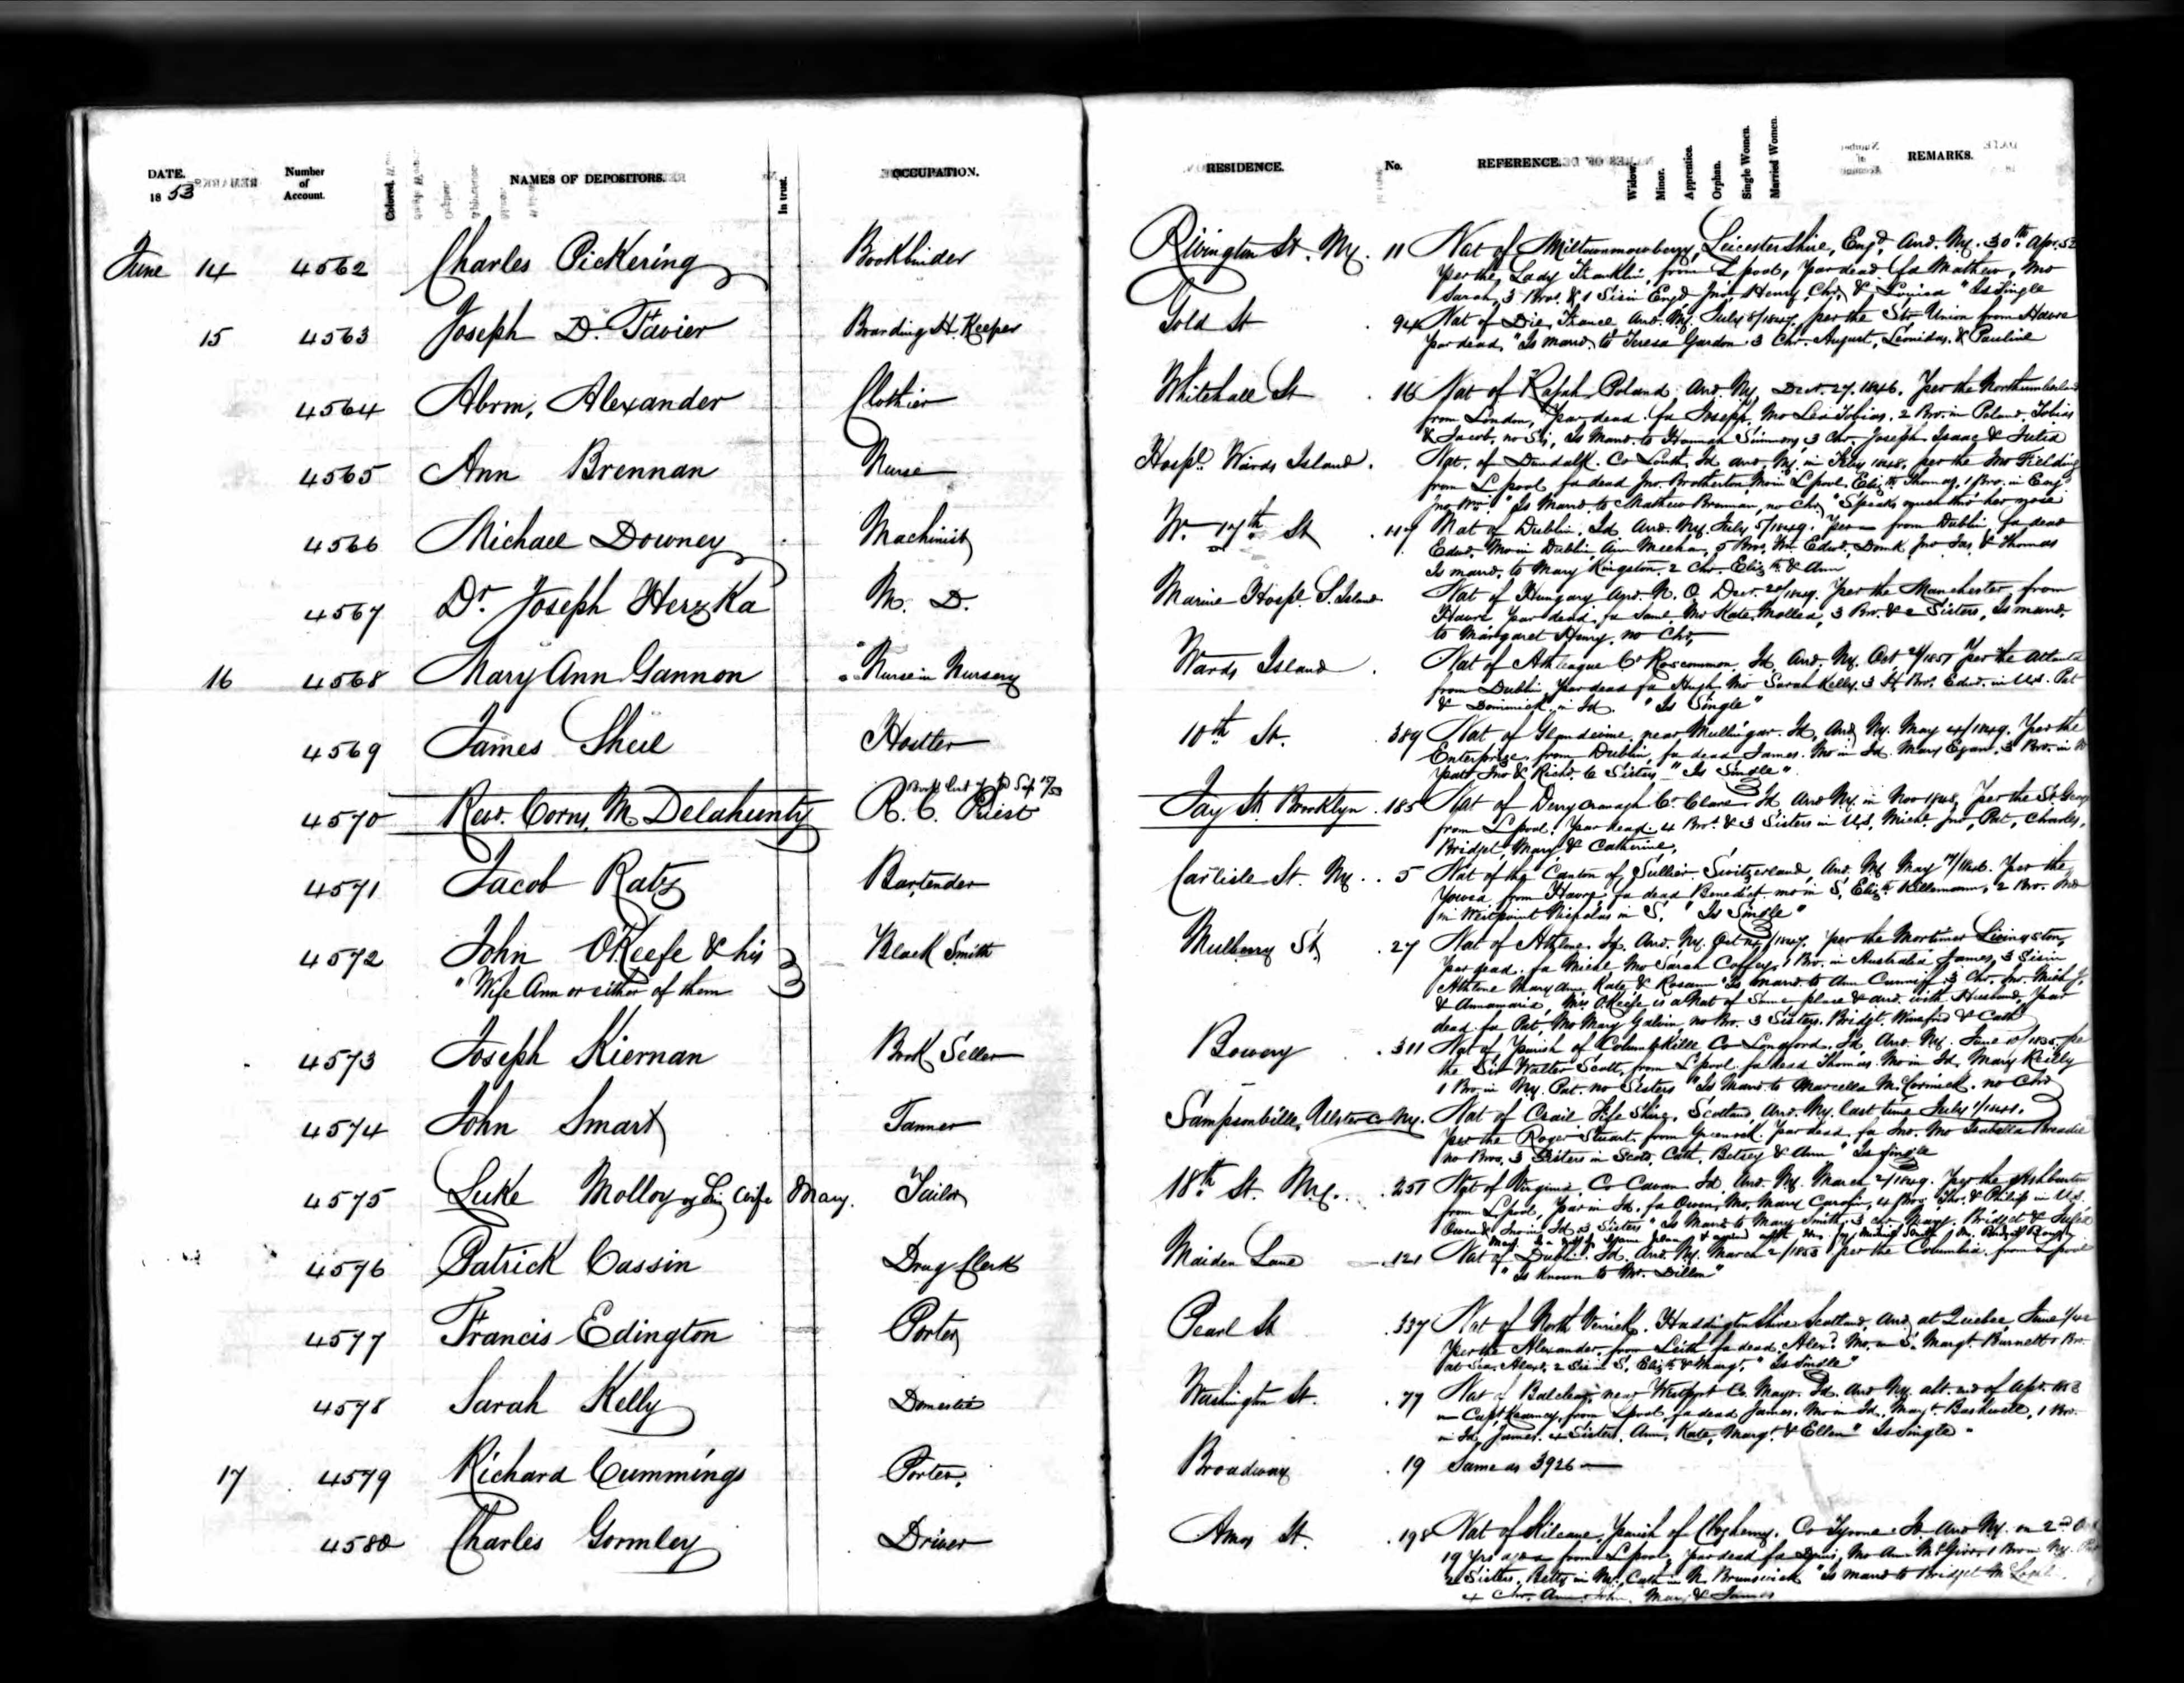 DATE. 1853 Number of Account. Colored. NAMES OF DEPOSITORS. In trust. OCCUPATION. RESIDENCE. No. REFERENCE. Widow. Minor. Apprentice. Orphan. Single Women. Married Women. REMARKS.
June 14 4562 Charles Pickering Bookbinder Rivington St. Ny. 11 Nat of Miltownmowberry, Leicestershire, Engd, Arrd. Ny. 30th Apr. 52
per the Lady Franklin from Lpool, par dead fa Mathew, Mo
Sarah, 3 Bros. & 1 Sis in Engd Jno, Henry, Chs, & Louisa "Is Single
15 4563 Joseph D. Favier Boarding H. Keeper Gold St 94 Nat of Die, France Arrd. Ny. July 8/1847, per the Str Union from Havre
par dead, "Is marrd. to Teresa Gardon. 3 Chr. August, Leonidas, & Pauline
4564 Abrm, Alexander Clothier Whitehall St 16 Nat of Poland, Arrd. Ny, Decr. 27. 1846. per the Northumberland
from London, par dead. fa Joseph, Mo Tobias. 2 Bro. in Poland. Tobias
& Jacob, no Sis, Is Marrd. to Hannah Simmons, 3 Chr. Joseph Isaac & Julia
4565 Ann Brennan Nurse Hospl. Wards Island. Nat. of Dundalk. Co Louth, Id arrd, Ny. in 1848. per the Jno Fielding
from Lpool, fa dead Jno. Brotherton, Mo in Lpool Elizth Thomas, 1 Bro. in Engd
Jno Wm. "Is Marrd. to Mathew Brennan, no Chr, "Speaks much thro' her nose
4566 Michael Downey Machinist W. 17th St 117 Nat of Dublin. Id. Arrd. Ny. July 5/1849. per — from Dublin, fa dead
Edwd, Mo in Dublin Ann Meehan, 5 Bros, Wm Edwd, Domk Jno Jas, & Thomas
Is marrd. to Mary Kingston. 2 Chr. Elizth & Ann
4567 Dr. Joseph Herzka M. D. Marine Hospl. S. Island. Nat of Hungary Arrd. N. O Decr. /1849. per the Manchester from
Havre par dead, fa Saml, Mo Kate, 3 Bro. & 2 Sisters, Is marrd.
to Margaret Henry, no Chr,
16 4568 Mary Ann Gannon Nurse in Nursery Wards Island Nat of Athleague Co Roscommon, Id, Arrd. Ny. Oct /1851 per the Atlanta
from Dublin, par dead fa Hugh, Mo Sarah Kelly. 3 Bro. Edwd. in U.S. Pat
& Dominick in Id. "Is Single"
4569 James Sheil Hostler 10th St. 389 Nat of near Mullingar. Id, Arrd. Ny. May /1849. per the
Enterprise from Dublin, fa dead James. Mo in Id. Mary Egan, 3 Bro. in
Patk Jno & Richd. 6 Sisters "Is Single"
4570 Revd. Corns. M Delahunty R. C. Priest Jay St. Brooklyn 185 Nat of Derry Co. Clare Id Arrd Ny. in Nov 1848, per the St. George
from Lpool. par dead. 4 Bro. & 3 Sisters in U.S. Michl Jno, Pat, Charles,
Bridget, Mary & Catherine,
4571 Jacob Ratz Bartender Carlisle St. Ny. 5 Nat of the Canton of Switzerland, Arrd. Ny May /1846. per the
from Havre, fa dead Benedict mo in S, Elizth 2 Bro.
in Westpoint Nicholas in S. "Is Single"
4572 John O'Keefe & his Black Smith Mulberry St, 27 Nat of Athlone. Id. Arrd. Ny. Oct /1847. per the Mortimer Livingston,
"Wife Ann or either of them par dead. fa Michl Mo Sarah Coffey, 1 Bro. in Australia James, 3 Sis in
Athlone Mary Ann, Kate & Rosann "Is marrd. to Ann 3 Chr. Jno. Michl J.
& Annamaria, Mrs O'Keefe is a Nat of Same place & arrd. with Husband, par
dead fa Pat, Mo Mary Galvin, no Bro. 3 Sisters. Bridgt. Winefrid & Cath
4573 Joseph Kiernan Book Seller Bowery 311 Nat of Parish of Columbkille Co Longford. Id. Arrd. Ny. June /1835. per
the Sir Walter Scott, from Lpool. fa dead Thomas. Mo in Id. Mary Reilly
1 Bro. in Ny. Pat. no Sisters "Is Marrd. to Marcella McCormick. no Chr
4574 John Smart Tanner Sampsonville, Ulster Co Ny. Nat of Crail Fife Shire, Scotland Arrd. Ny. last time July
per the Roger Stuart from Greenock. par dead fa Jno. Mo Isabella
no Bros, 3 Sisters in Scotd, Cath, Betsey & Ann "Is Single
4575 Luke Molloy or his wife Mary. Tailor 18th St. Ny. 251 Nat of Virginia. Co Cavan Id Arrd. Ny. March 2/1849. per the Ashburton
from Lpool, par in Id. fa Owen, Mo, Mary 4 Bros Thos. & Philip in U.S.
Owen & Jno in Id 3 Sisters "Is Marrd to Mary Smith 3 chr, Mary, Bridget & Julia
4576 Patrick Cassin Drug Clerk Maiden Lane 121 Nat of Dublin. Id. Arrd. Ny. March 2/1853 per the Columbia from Lpool
"Is Known to Mr. Dillon"
4577 Francis Edington Porter Pearl St 337 Nat of North Berwick. Haddington Shire Scotland, Arrd, at Quebec, June
per the Alexander, from Leith fa dead, Alexr. Mo. in S. Margt. Burnett 1 Bro.
at Sea, Alexr. 2 Sis in S, Elizth & Margt. "Is Single"
4578 Sarah Kelly Domestic Washington St. 77 Nat of near Westport Co. Mayo. Id. Arrd Ny. abt. end of Apr. 1853
Capt Kearney, from Lpool fa dead James. Mo in Id, Margt. 1 Bro.
in Id, James. 4 Sisters. Ann, Kate, Margt. & Ellen "Is Single"
17 4579 Richard Cummings Porter. Broadway 19 Same as 3926
4580 Charles Gormley Driver Amos St. 198 Nat of Parish of Co Tyrone Id Arrd Ny. on 2nd
19 Yrs ago from Lpool, par dead fa Mo Ann 1 Bro in Ny.
2 Sisters, Betty in Ny, Cath in N. Brunswick "Is marrd to Bridget
4 Chr. Ann John. Mary & James